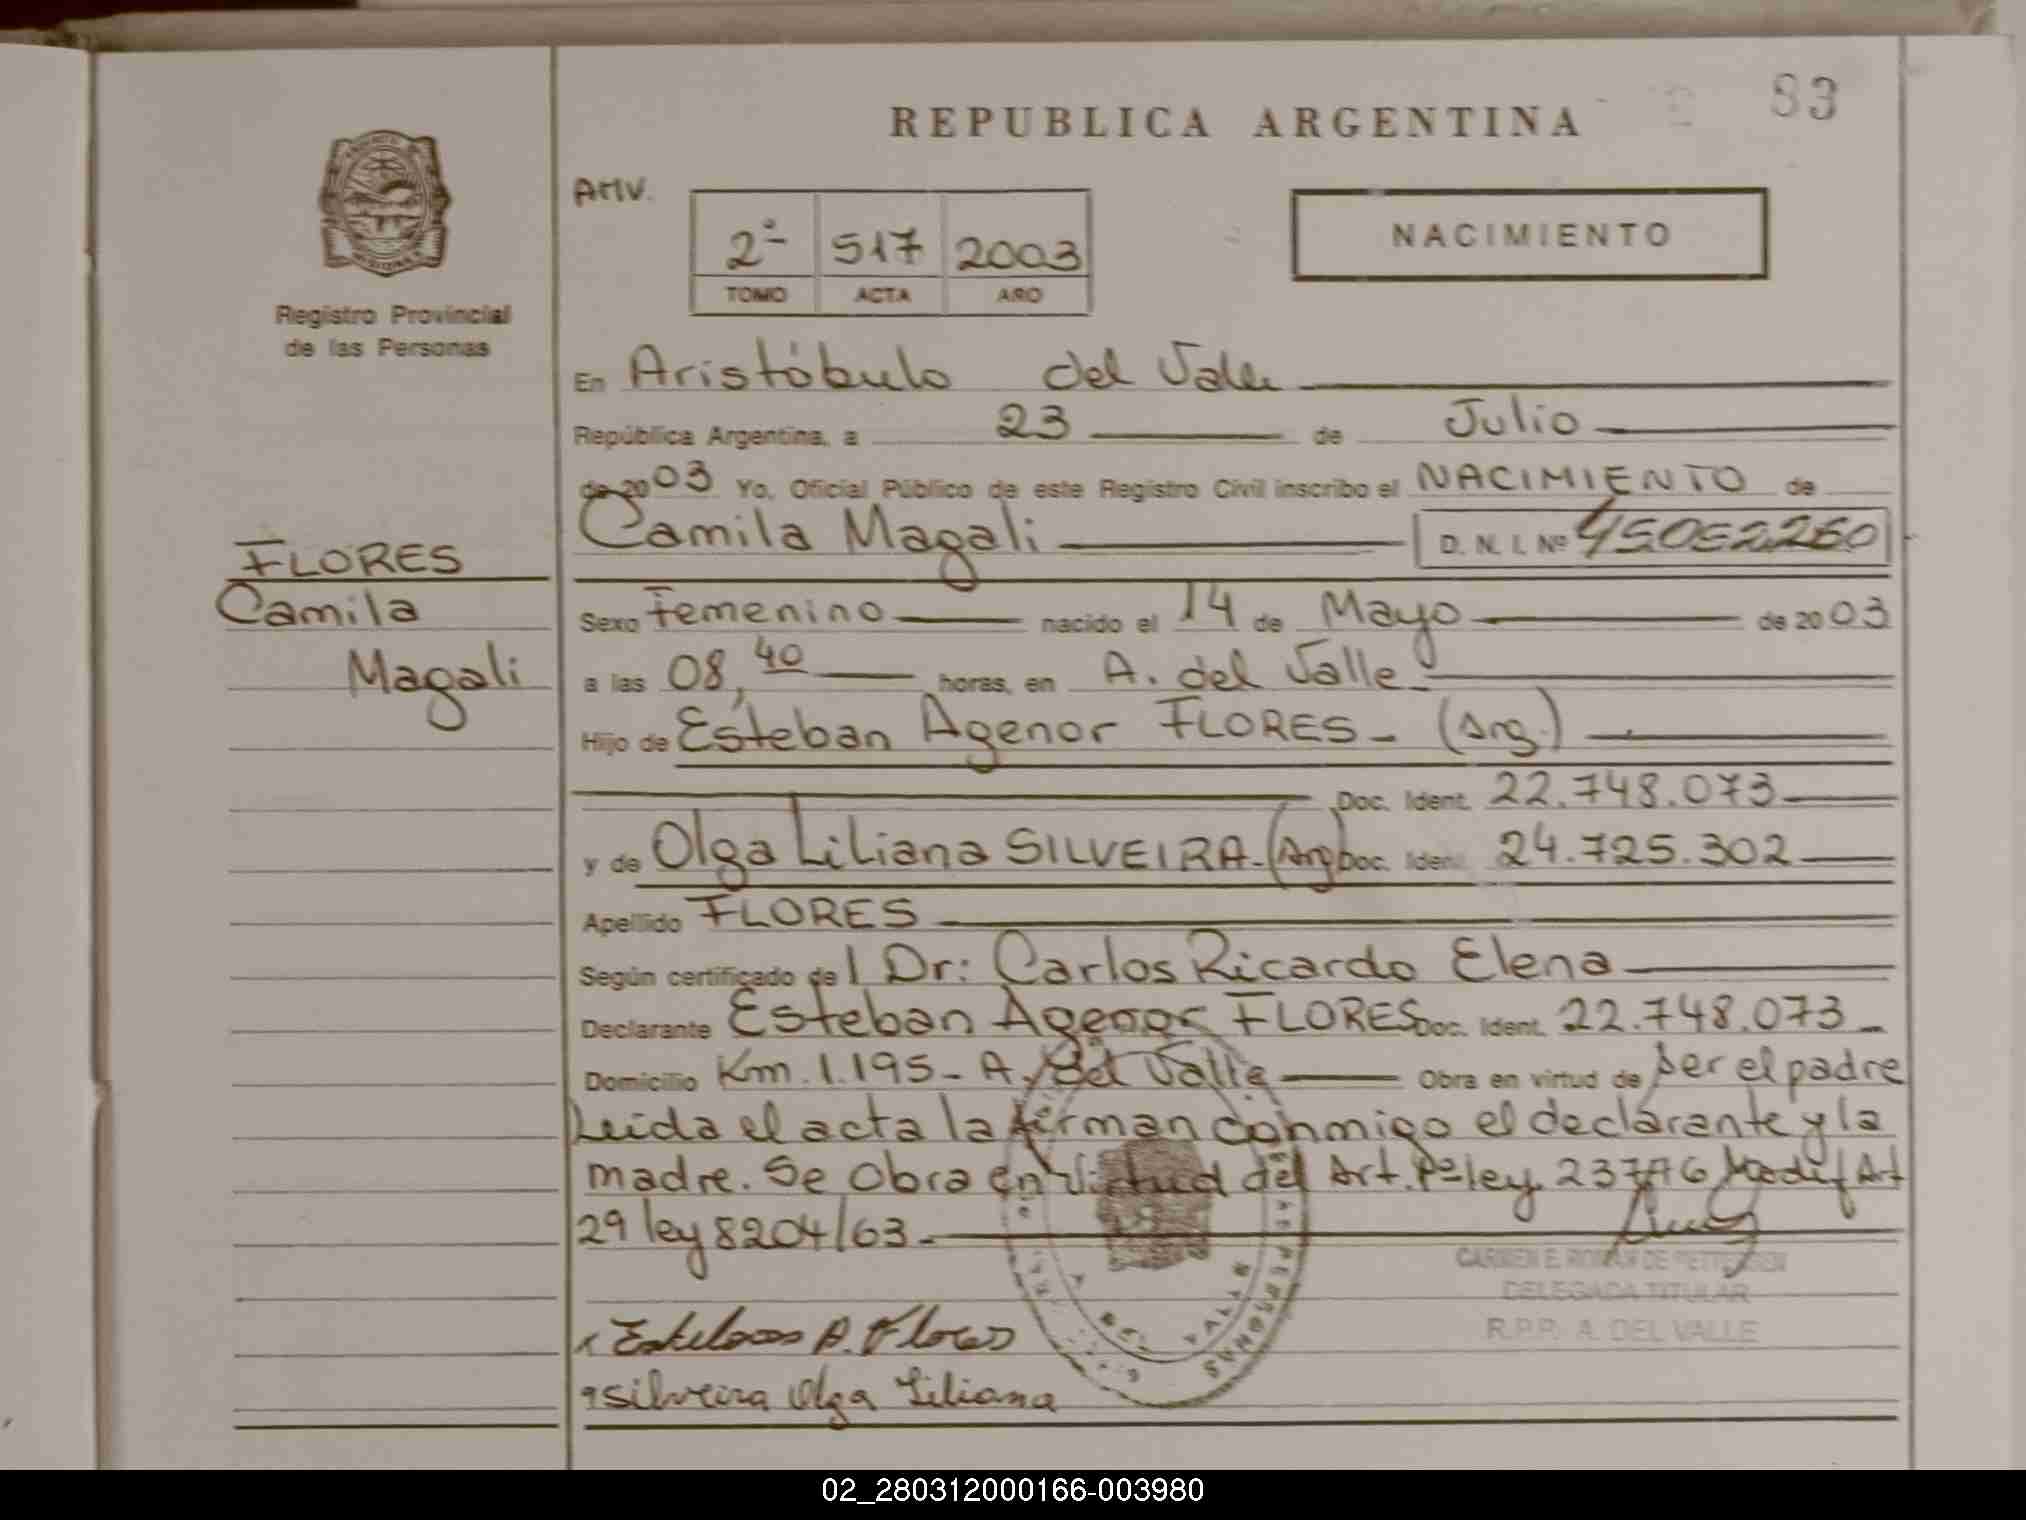 REPUBLICA ARGENTINA
83
AHV.
2º 517 2003
TOMO ACTA AÑO
NACIMIENTO
Registro Provincial
de las Personas
En Aristóbulo del Valle
República Argentina, a 23 de Julio
de 2003 Yo, Oficial Público de este Registro Civil inscribo el NACIMIENTO de
Camila Magali D. N. I. Nº
FLORES
Camila
Magali
Sexo Femenino nacido el 14 de Mayo de 2003
a las 08,40 horas, en A. del Valle
Hijo de Esteban Agenor FLORES - (Arg.)
Doc. Ident. 22.748.073
y de Olga Liliana SILVEIRA - (Arg) Doc. Ident. 24.725.302
Apellido FLORES
Según certificado del Dr: Carlos Ricardo Elena
Declarante Esteban Agenor FLORES Doc. Ident. 22.748.073
Domicilio Km. 1.195 - A. del Valle Obra en virtud de ser el padre
Leida el acta la firman conmigo el declarante y la
madre. Se Obra en Virtud del Art. 1º ley. 23776 Modif Art
29 ley 8204/63.
CARMEN E. ROMAN DE PETTERSEN
DELEGADA TITULAR
R.P.P. A. DEL VALLE
Esteban A. Flores
Silveira Olga Liliana
A. DEL VALLE
PERSONAS
02_280312000166-003980